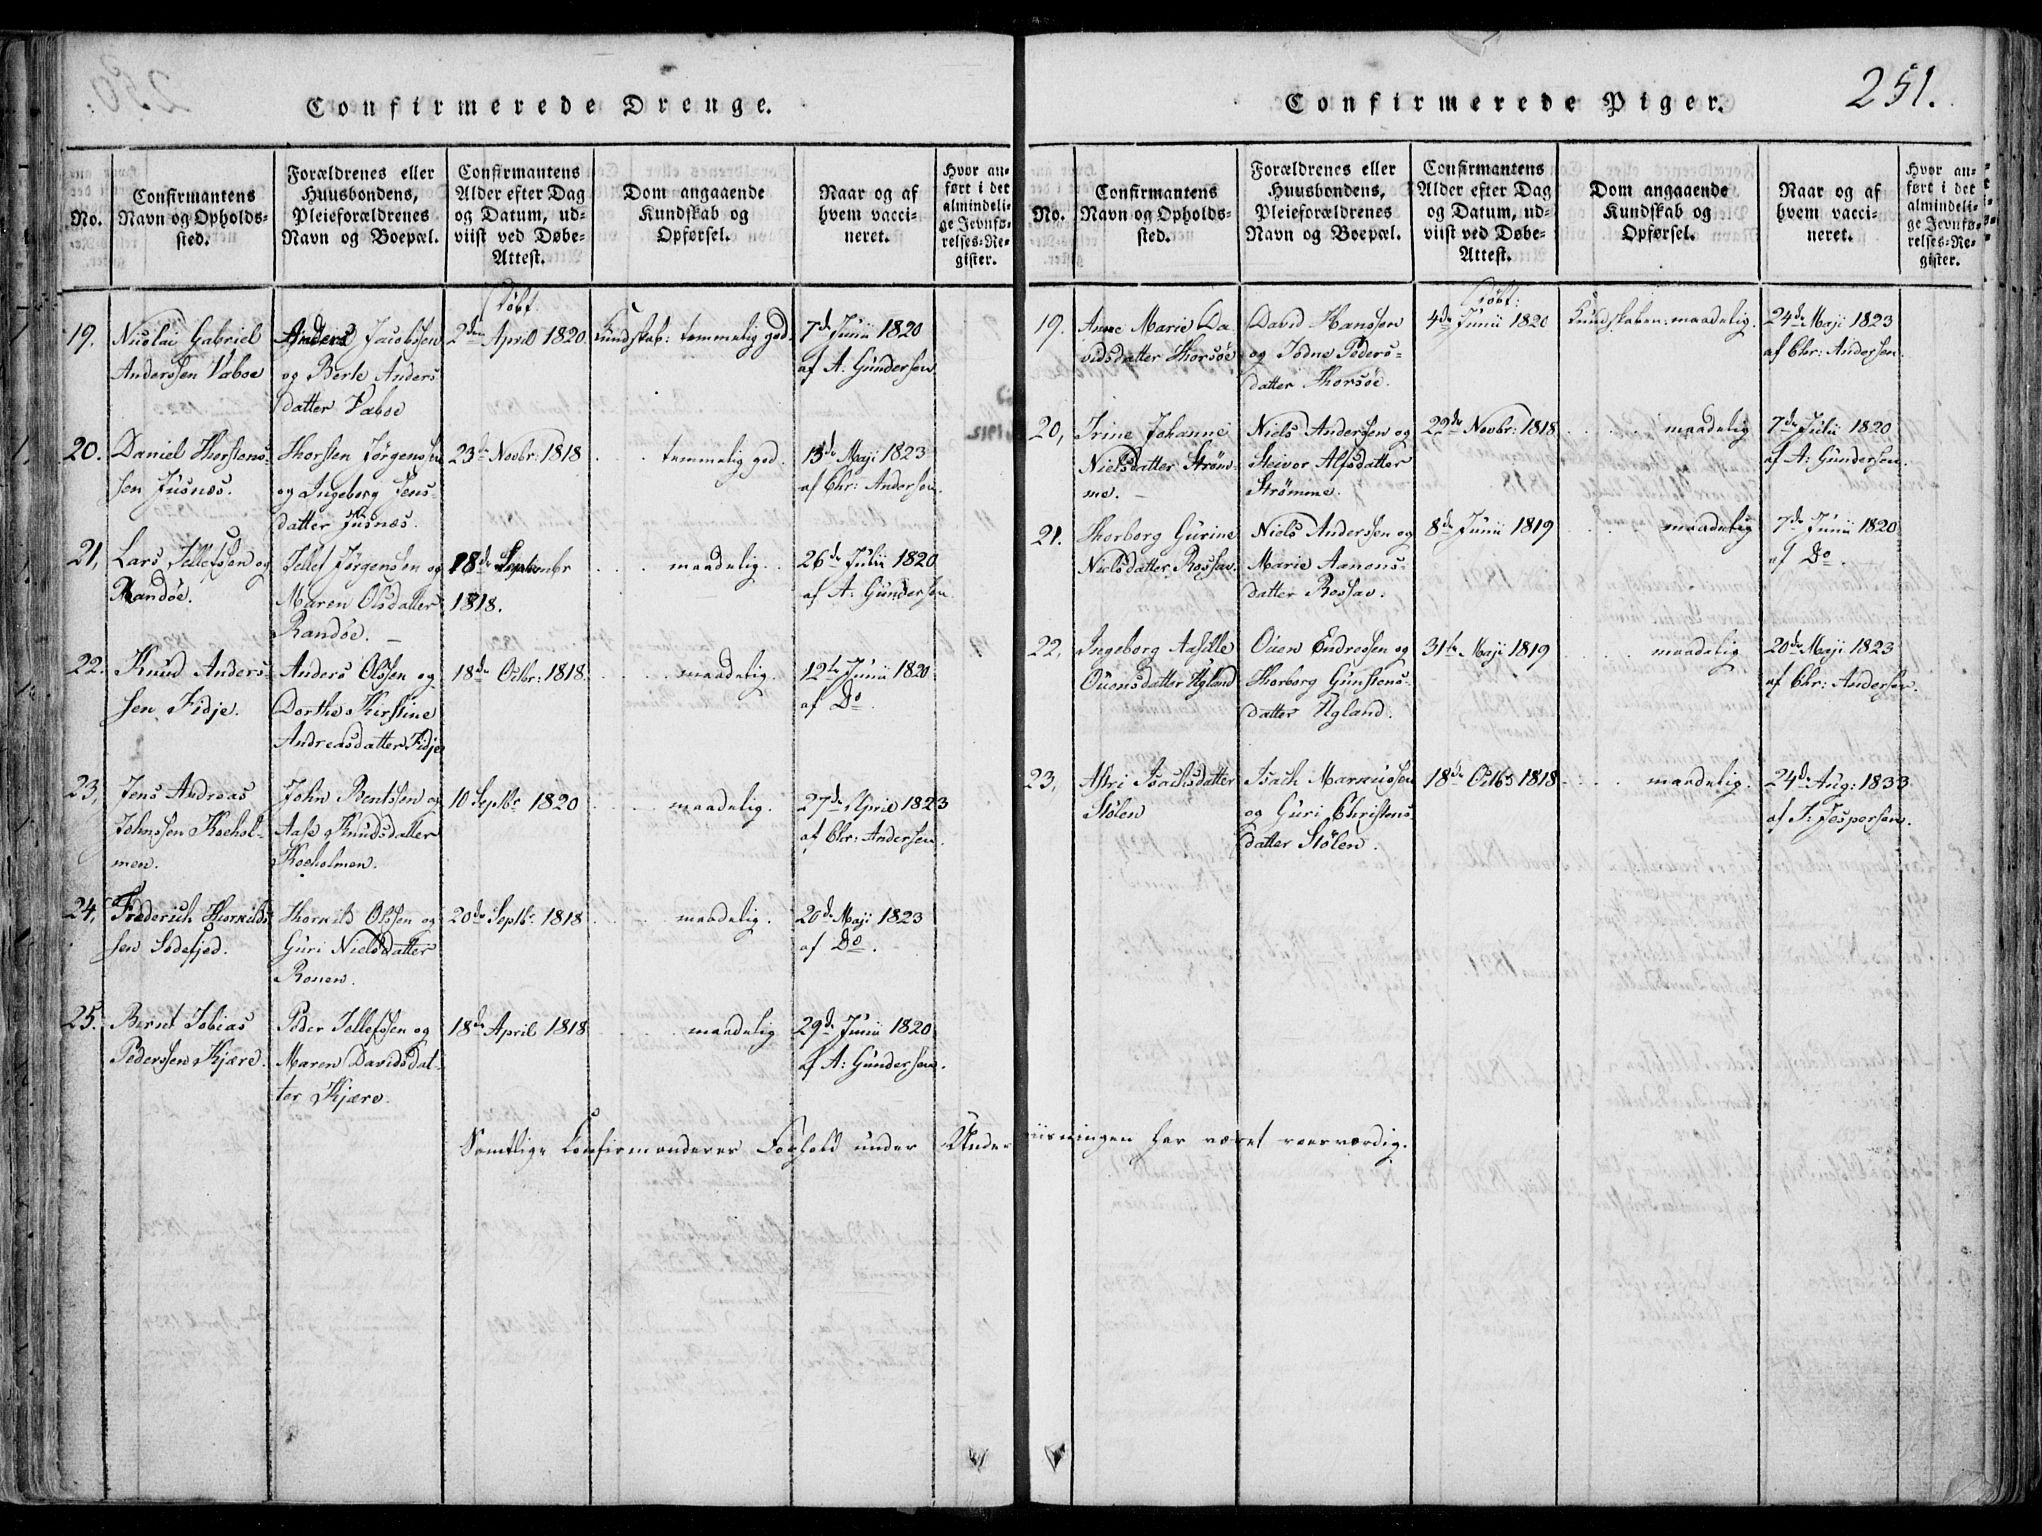 251.
Confirmerede Drenge.
No.
Confirmantens Navn og Opholdssted.
Forældrenes eller Huusbondens, Pleieforældrenes Navn og Boepæl.
Confirmantens Alder efter Dag og Datum, udviist ved Døbe-Attest.
Dom angaaende Kundskab og Opførsel.
Naar og af hvem vaccineret.
Hvor anført i det almindelige Jevnførelses-Register.
19. Nicolai Gabriel Anderssen Vaboe
Anders Jacobssen og Berte Andersdatter Vaboe
Døbt: 2den April 1820.
Kundskab: temmelig god.
7de Junii 1820 af A: Gundersen
20. Daniel Thorstenssen Jusnæs.
Thorsten Jørgenssen og Ingeborg Jensdatter Jusnæs.
23de Novbr: 1818
temmelig god.
13de Maji 1823 af Chr: Andersen.
21, Lars Tellefssen Randøe.
Tellef Jørgenssen og Maren Olsdatter Randøe.
18de Septembr 1818.
maadelig.
26de Julii 1820 af A: Gundersen
22. Knud Anderssen Fidje.
Anders Olssen og Dorthe Kirstine Andreasdatter Fidje
18de Octbr: 1818.
maadelig.
12te Junii 1820 af Do.
23, Jens Andreas Johnssen Koeholmen.
John Bentssen og Aase Knudsdatter Koeholmen.
10 Septbr 1820
maadelig.
27de April 1823 af Chr: Andersen.
24, Frederich Thorkildssen Sodefjed.
Thorkild Olssen og Guri Nielsdatter Ronen.
20de Septbr 1818
maadelig.
20de Maji 1823 af Do.
25. Bernt Tobias Pederssen Kjære.
Peder Tellefssen og Maren Davidsdatter Kjære.
18de April 1818
maadelig
29de Junii 1820 af A: Gundersen.
Samtlige Confirmanderes Forhold under Underviisningen har været roesværdig.
Confirmerede Piger.
No.
Confirmantens Navn og Opholdssted.
Forældrenes eller Huusbondens, Pleieforældrenes Navn og Boepæl.
Confirmantens Alder efter Dag og Datum, udviist ved Døbe-Attest.
Dom angaaende Kundskab og Opførsel.
Naar og af hvem vaccineret.
Hvor anført i det almindelige Jevnførelses-Register.
19. Anne Marie Davidsdatter Thorsøe
David Hanssen og Jødne Pedersdatter Thorsøe.
Døbt: 4de Junii 1820
Kundskaben: maadelig.
24de Maji 1823 af Chr: Andersen.
20, Trine Johanne Nielsdatter Strømme.
Niels Anderssen og Steivor Alfsdatter Strømme.
29de Novbr: 1818
maadelig
7de Julii 1820 af A: Gundersen.
21. Thorborg Gurine Nielsdatter Rossav.
Niels Anderssen og Marie Aanonsdatter Rossav.
8de Junii 1819
maadelig
7de Junii 1820 af Do.
22, Ingeborg Aasille Ouensdatter Ugland
Ouen Endressen og Thorborg Gunstensdatter Ugland.
31te Maji 1819
maadelig
20de Maji 1823 af Chr: Andersen.
23, Astri Isachsdatter Stølen
Isach Marcussen og Guri Christensdatter Stølen.
18de Octbr 1818
maadelig.
24de Aug: 1833 af J: Jespersen.